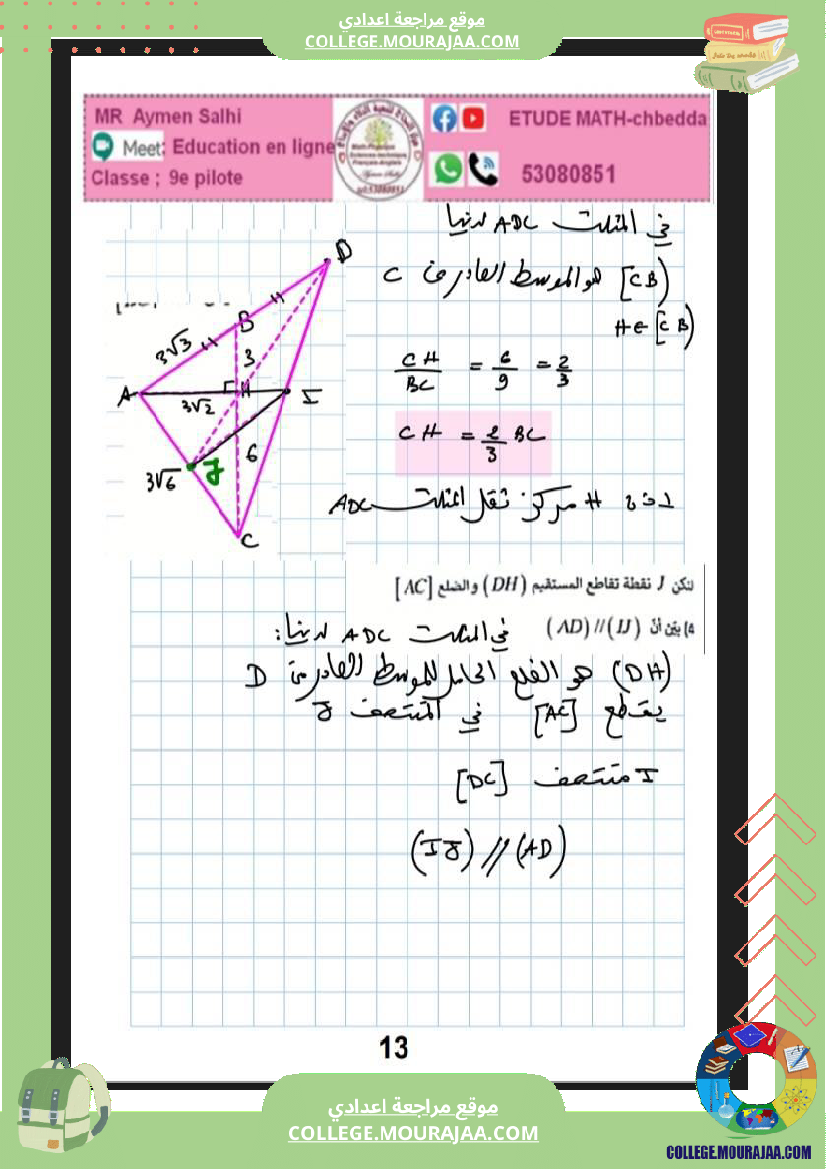 موقع مراجعة اعدادي
COLLEGE.MOURAJAA.COM
MR Aymen Salhi
Meet: Education en ligne
Classe ; 9e pilote
ETUDE MATH-chbedda
53080851
في المثلث ADC لدينا
[CB] هو الموسط الصادر من C
H ∈ [CB]
CH/BC = 6/9 = 2/3
CH = 2/3 BC
إذن H مركز ثقل المثلث ADC
D
B
3√3
3
A
H
I
3√2
6
J
3√6
C
لتكن J نقطة تقاطع المستقيم (DH) والضلع [AC]
4) بيّن أنّ (AD) // (IJ)
في المثلث ADC لدينا:
(DH) هو الضلع الحامل للموسط الصادر من D
يقطع [AC] في المنتصف J
I منتصف [DC]
(IJ) // (AD)
13
موقع مراجعة اعدادي
COLLEGE.MOURAJAA.COM
COLLEGE.MOURAJAA.COM